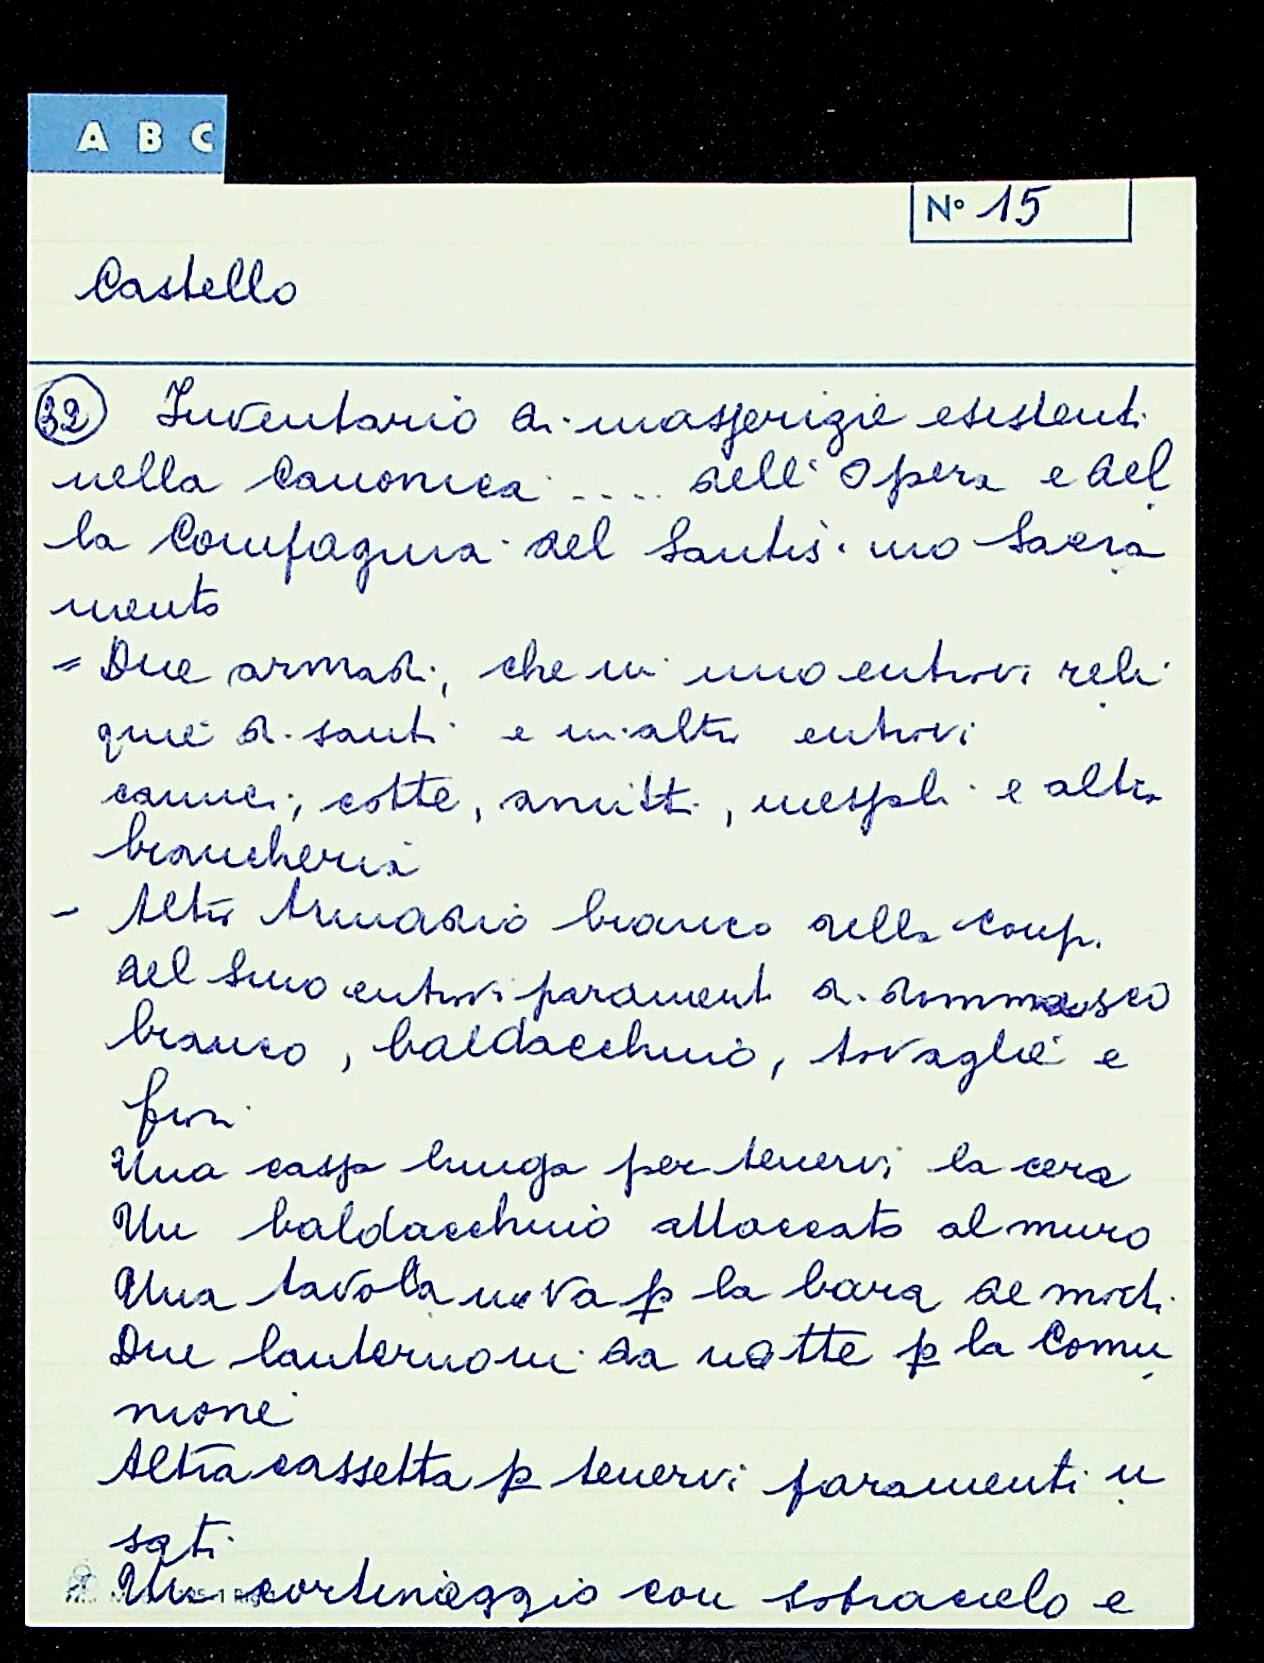 A B C
N° 15
Castello
32 Inventario di masserizie esistenti
nella Canonica .... dell' Opera e del
la Compagnia del Santis.mo Sacra
mento
= Due armadi, che in uno entrovi reli
quie di santi e in altro entrovi
camici, cotte, amitti, mesfali e altra
biancheria
- Altro Armadio bianco della Comp.
del Smo entrovi paramenti di dommasco
bianco, baldacchino, tovaglie e
fiori
Una cassa lunga per tenervi la cera
Un baldacchino attaccato al muro
Una tavola nova p la bara de morti
Due lanternoni da notte p la Comu
nione
Altra cassetta p tenervi paramenti u
sati
Un cortinaggio con sobracielo e